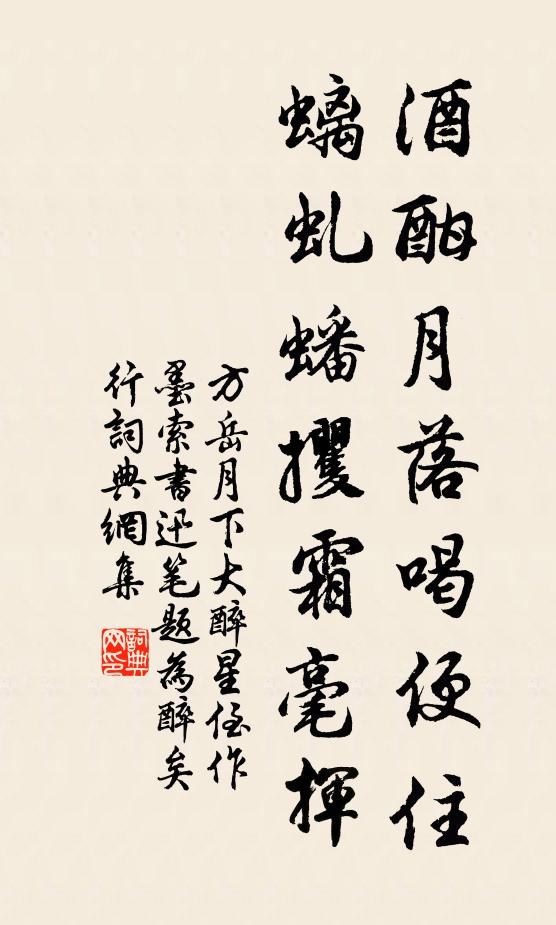 酒酣月落喝便住
螭虬蟠攫霜毫揮
方岳月下大醉星侄作
墨索書迅筆題為醉矣
行詞典網集
詞典網印